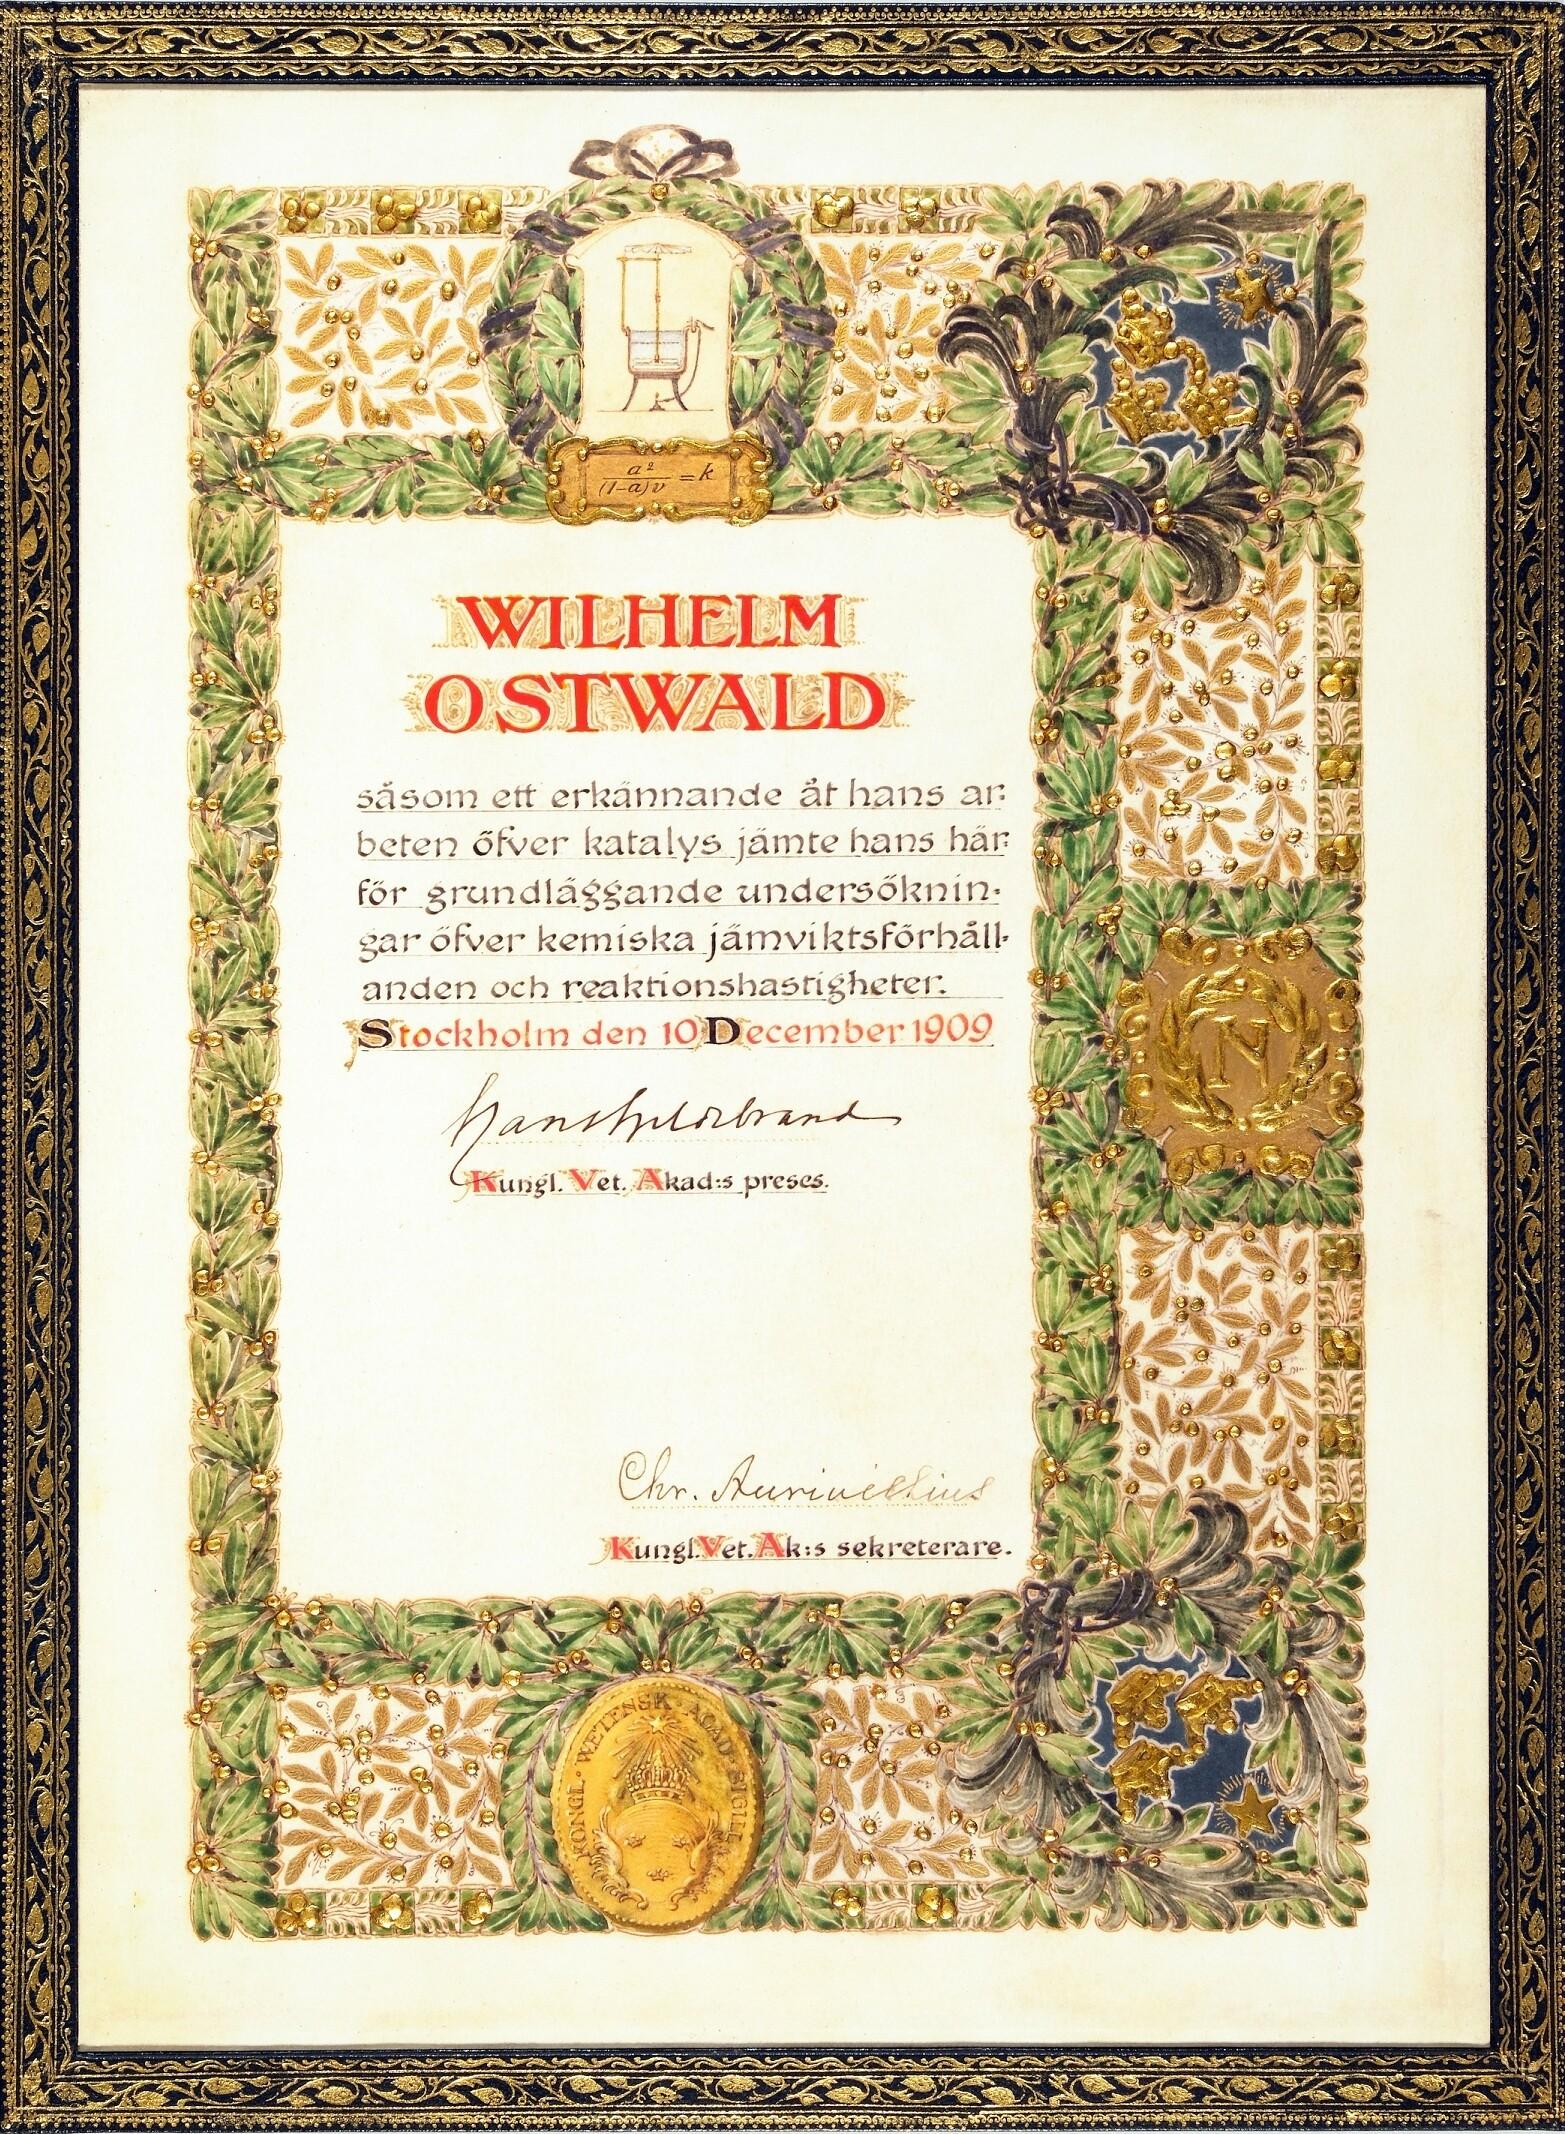 a²
(1-a)v = k
WILHELM
OSTWALD
såsom ett erkännande åt hans ar-
beten öfver katalys jämte hans här-
för grundläggande undersöknin-
gar öfver kemiska jämviktsförhåll-
anden och reaktionshastigheter.
Stockholm den 10 December 1909
Hans Hildebrand
Kungl. Vet. Akad:s preses.
N
Chr. Aurivillius
Kungl. Vet. Ak:s sekreterare.
KONGL · WETENSK · ACAD · SIGILL